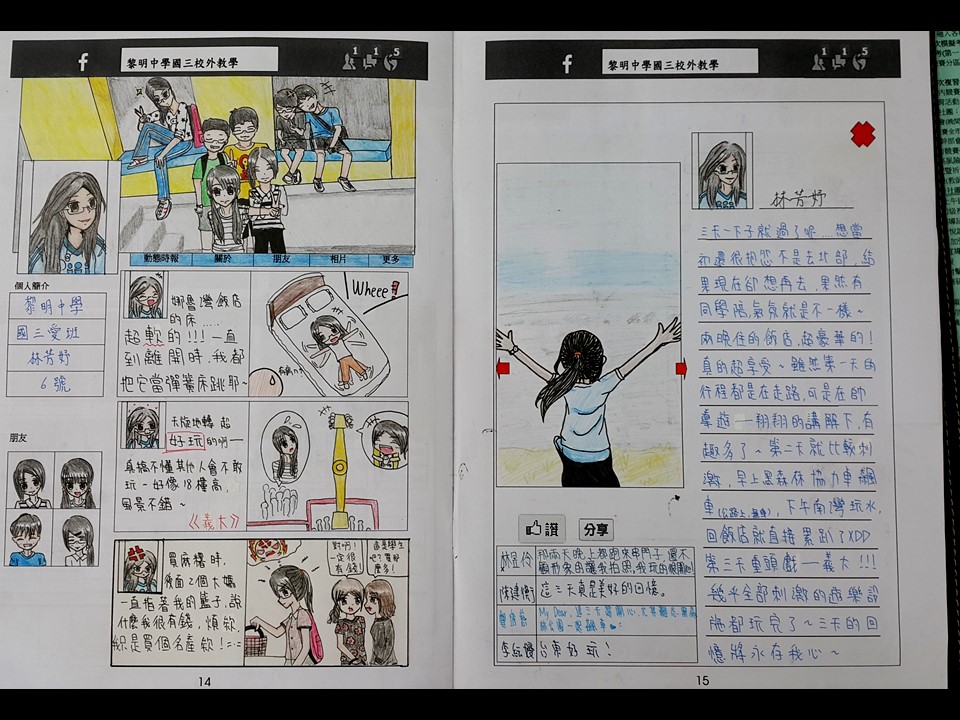 f 黎明中學國三校外教學 1 1 5
動態時報 關於 朋友 相片 更多
個人簡介
黎明中學
國三愛班
林芳妤
6號
朋友
娜魯灣飯店
的床.....
超軟的!!!一直
到離開時,我都
把它當彈簧床跳耶~
Wheee!
天旋地轉 超
好玩的啊—
真搞不懂其他人會不敢
玩~好像18樓高,
風景不錯~
《義大》
買麻糬時,
後面2個大嬸
一直指著我的籃子,說
什麼我很有錢,煩欸,
我只是買個名產欸!=.=
對啊!一定很有錢!
這是學生吧?買那麼多!
14
f 黎明中學國三校外教學 1 1 5
林芳妤
三天一下子就過了呢....想當
初還很抱怨不是去北部,結
果現在卻想再去,果然有
同學陪,氣氛就是不一樣~
兩晚住的飯店,超豪華的!
真的超享受~雖然第一天的
行程都是在走路,可是在帥
導遊—翔翔的講解下,有
趣多了~第二天就比較刺
激,早上黑森林協力車飆
車(公路上,無車),下午南灣玩水,
回飯店就直接累趴了XDD
第三天重頭戲—義大!!!
幾乎全部刺激的遊樂設
施都玩完了~三天的回
憶將永存我心~
讚 分享
那兩天晚上都跑來串門子,還不
這三天真是美好的回憶。
My Dear,這三天超開心
台東好玩!
15